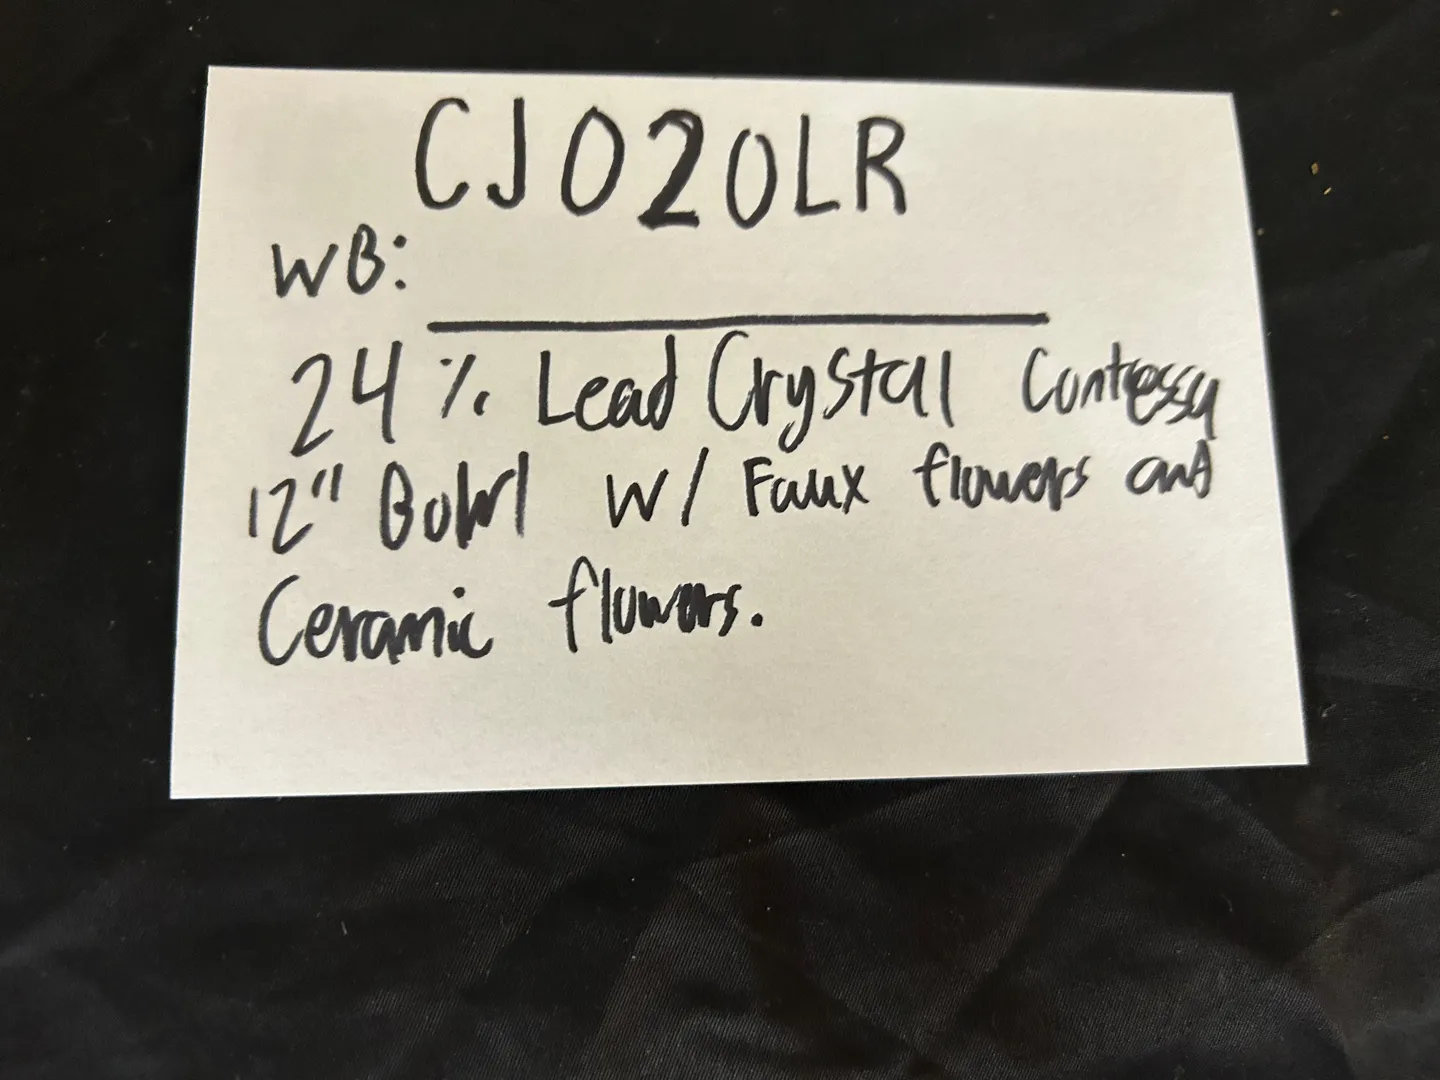 CJ020LR
WB:
24% Lead Crystal Contessa
12" Bowl w/ Faux flowers and
Ceramic flowers.